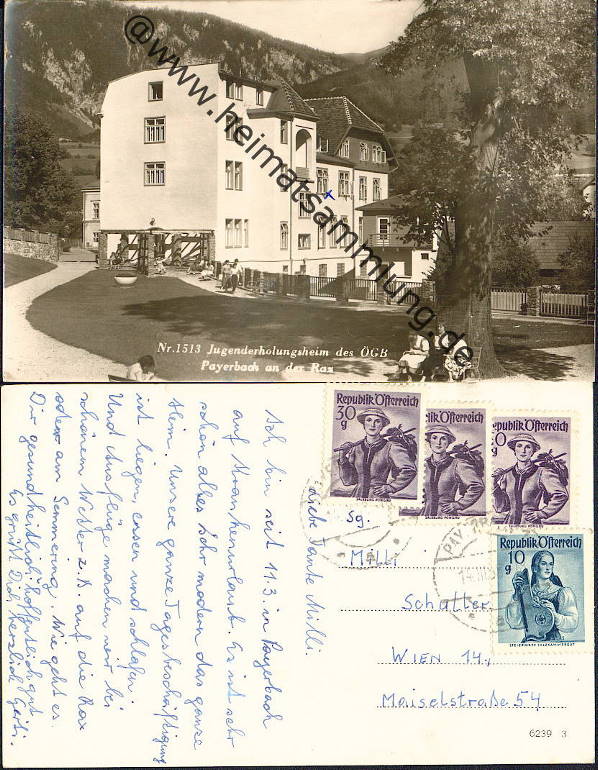 @www.heimatsammlung.de
Nr. 1513 Jugenderholungsheim des ÖGB
Payerbach an der Rax
Liebe Tante Milli.
Ich bin seit 11.3. in Payerbach
auf Krankenurlaub. Es ist sehr
schön alles sehr modern das ganze
Heim. Unsere ganze Tagesbeschäftigung
ist liegen, essen und schlafen.
Und Ausflüge machen wir bei
schönem Wetter z.B. auf die Rax
oder am Semmering. Wie geht es
Dir gesundheitlich hoffentlich gut.
Es grüßt Dich herzlich Gerti.
Republik Österreich
30
g
SALZBURG, PINZGAU
Republik Österreich
SALZBURG, PINZGAU
Republik Österreich
SALZBURG, PINZGAU
Republik Österreich
10
g
STEIERMARK, SALZKAMMERGUT
Milli
Schaller
WIEN 14.,
Maiselstraße 54
6239 3